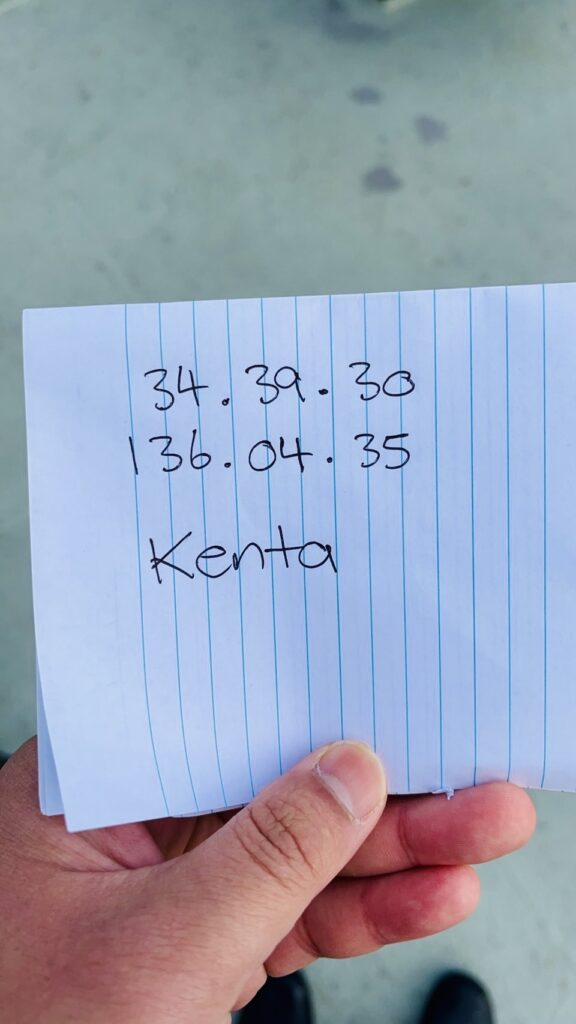 34.39.30
136.04.35
Kenta